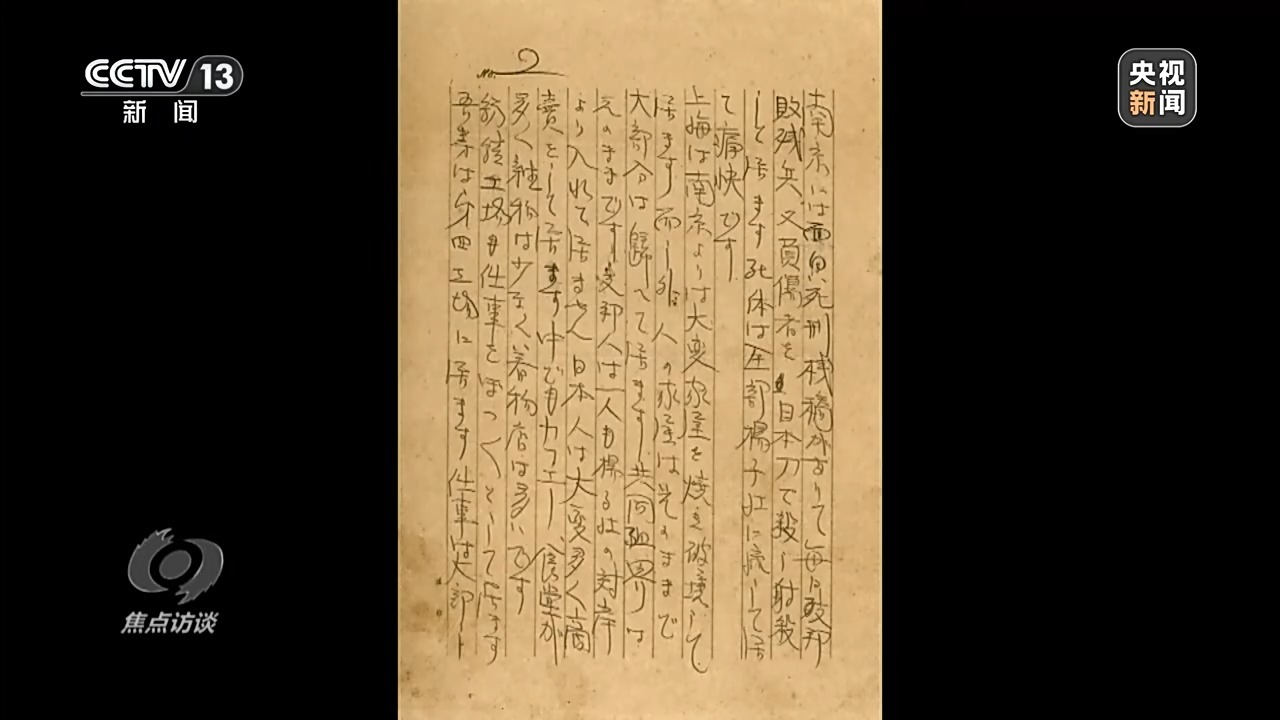 CCTV 13
新闻
央视
新闻
No. 2
南京には面白い死刑桟橋がありて毎日支那
敗残兵又負傷者を日本刀で殺し射殺
して居ます死体は全部楊子江に流して居
て痛快です
上海は南京よりは大変家屋を焼き破壊して
居ます而し外人の家屋は其のままで
大部分は歸へて居ます共同租界りは
元のままです支那人は一人も楊る江の対岸
より入れて居ません日本人は大変多く商
賣をして居ます中でもカフエー食堂が
多く雑物は少なく着物店は多いです
紡績工場も仕事をぼつ〱として居ます
吾等は第四工場に居ます仕事は大部
焦点访谈